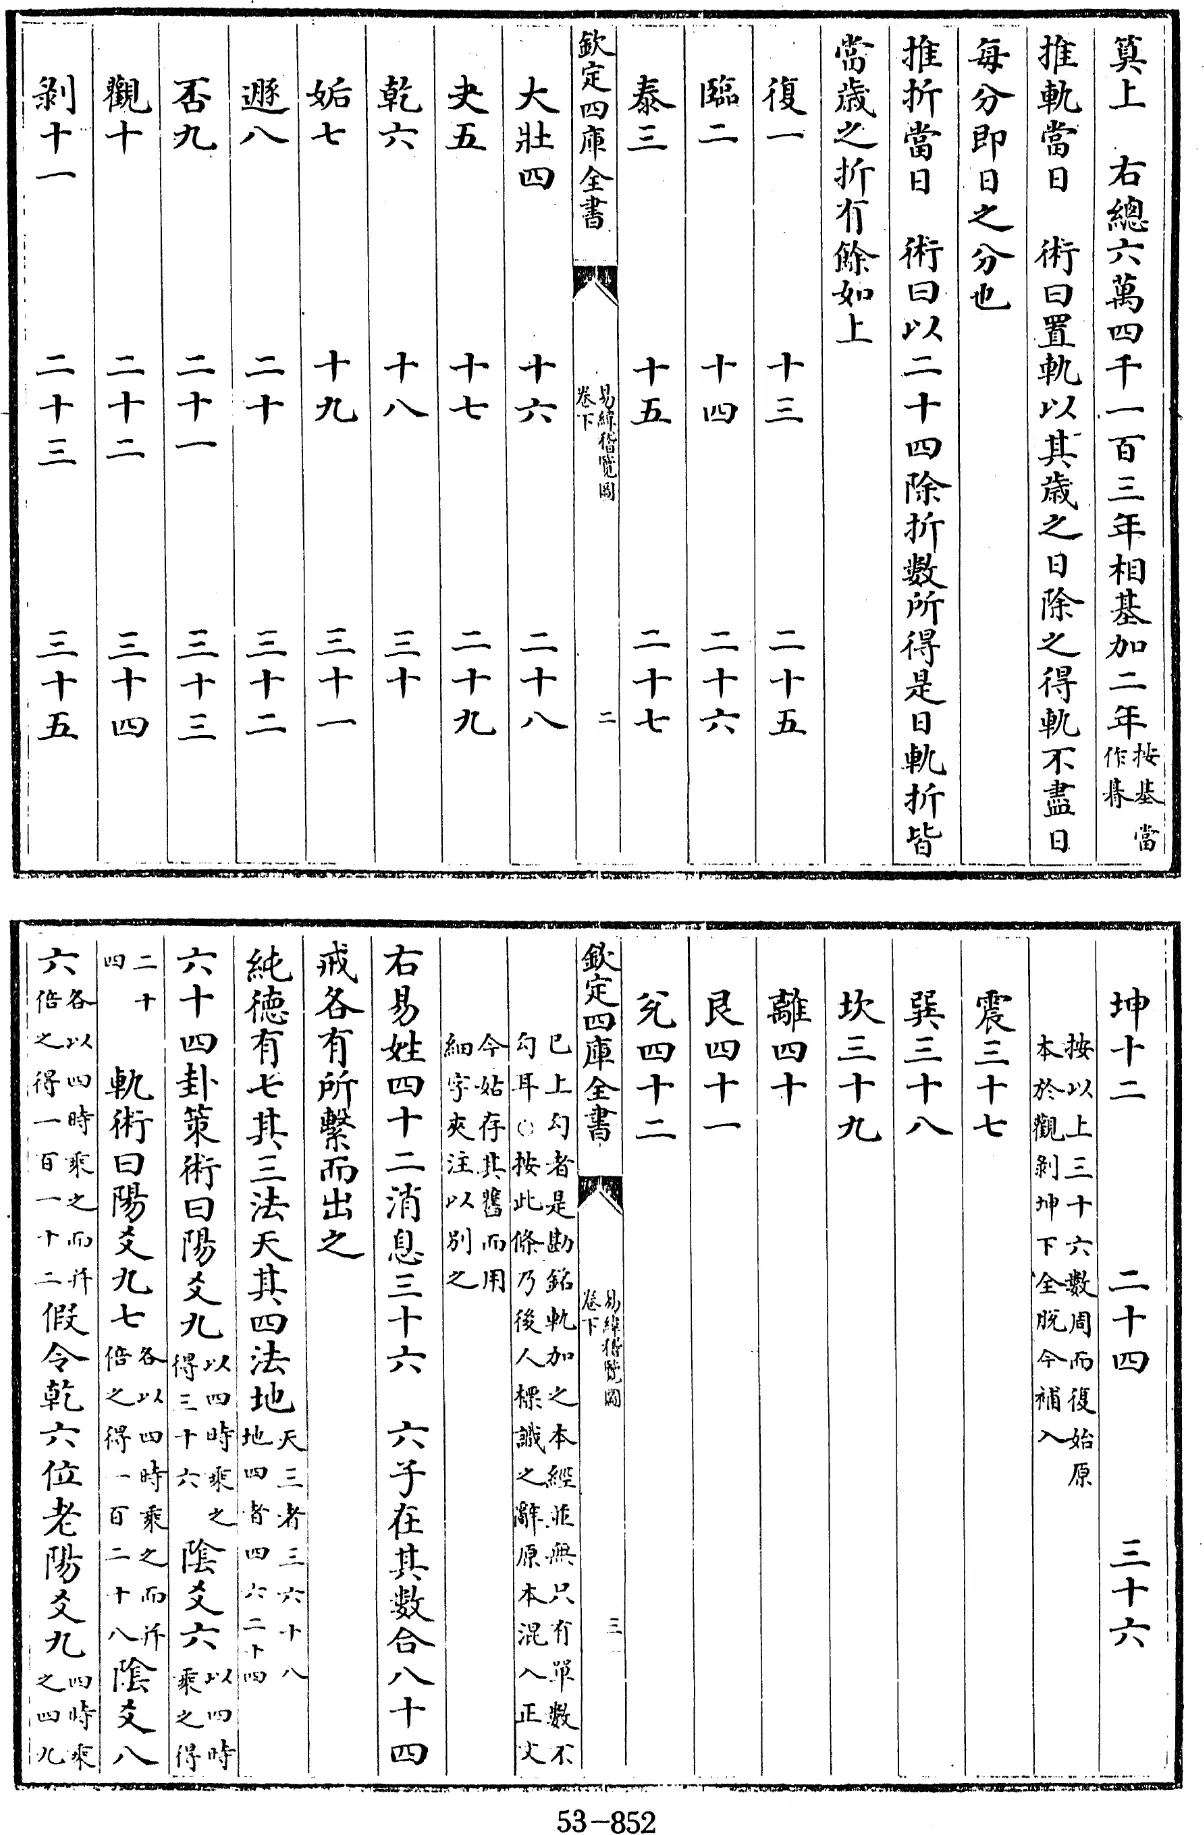 筭上　右總六萬四千一百三年相基加二年按基當作朞
推軌當日　術曰置軌以其歲之日除之得軌不盡日
每分即日之分也
推折當日　術曰以二十四除折數所得是日軌折皆
當歲之折有餘如上
復一　十三　二十五
臨二　十四　二十六
泰三　十五　二十七
欽定四庫全書　易緯稽覽圖卷下　二
大壯四　十六　二十八
夬五　十七　二十九
乾六　十八　三十
姤七　十九　三十一
遯八　二十　三十二
否九　二十一　三十三
觀十　二十二　三十四
剝十一　二十三　三十五
坤十二　二十四　三十六
按以上三十六數周而復始原
本於觀剝坤下全脫今補入
震三十七
巽三十八
坎三十九
離四十
艮四十一
兌四十二
欽定四庫全書　易緯稽覽圖卷下　三
已上勾者是勘銘軌加之本經並無只有單數不
勾耳○按此條乃後人標識之辭原本混入正文
今姑存其舊而用
細字夾注以別之
右易姓四十二消息三十六　六子在其數合八十四
戒各有所繫而出之
純德有七其三法天其四法地天三者三六十八地四者四六二十四
六十四卦策術曰陽爻九以四時乘之得三十六陰爻六以四時乘之得
二十四　軌術曰陽爻九七各以四時乘之而并倍之得一百二十八陰爻八
六各以四時乘之而并倍之得一百一十二假令乾六位老陽爻九四時乘之四九
53-852